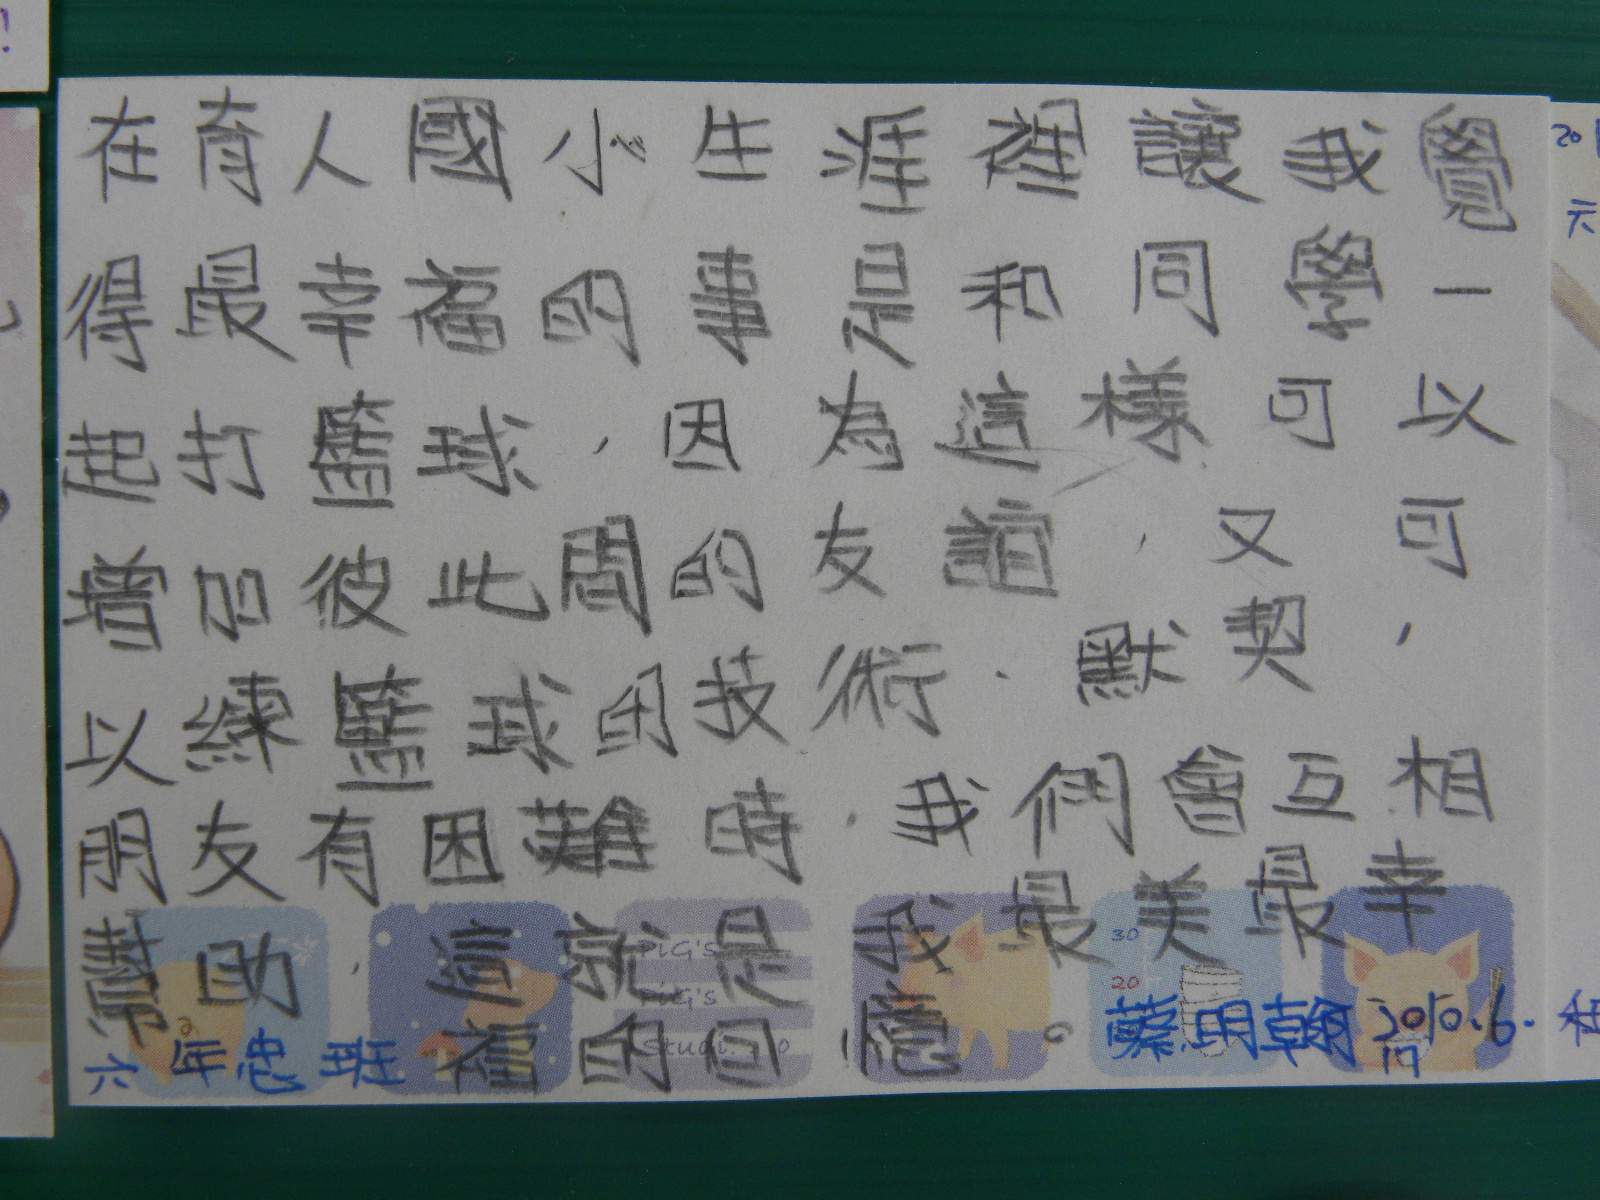 在育人國小生涯裡讓我覺
得最幸福的事是和同學一
起打籃球,因為這樣可以
增加彼此間的友誼,又可
以練籃球的技術、默契,
朋友有困難時,我們會互相
幫助,這就是我最美最幸
福的回憶。
六年忠班
蔡明翰 2010.6.
17
PiG's
PiG's
Studi
30
20
20
六
!